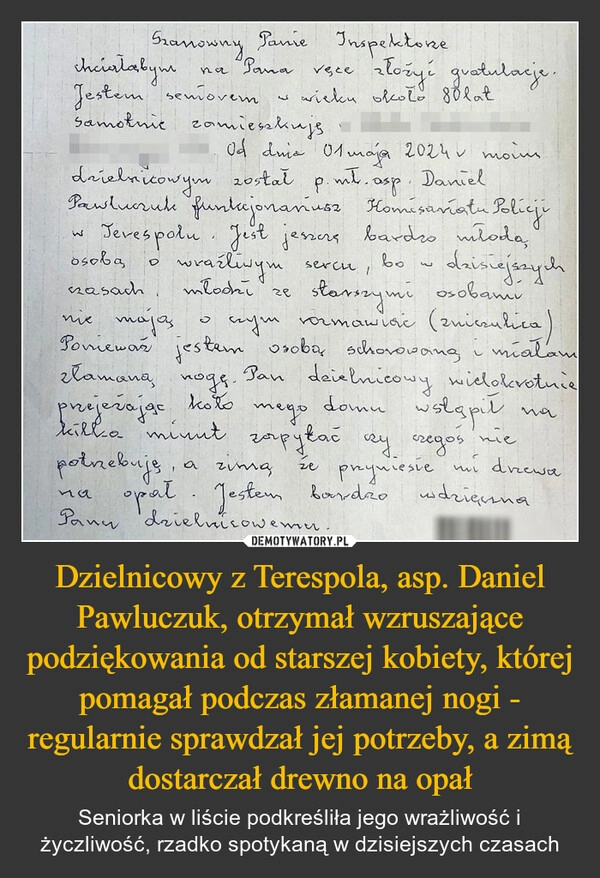 Szanowny Panie Inspektorze
chciałabym na Pana ręce złożyć gratulacje.
Jestem seniorem w wieku około 80 lat
samotnie zamieszkuję
Od dnia 01 maja 2024 r moim
dzielnicowym został p. mł. asp. Daniel
Pawluczuk funkcjonariusz Komisariatu Policji
w Terespolu. Jest jeszcze bardzo młodą
osobą o wrażliwym sercu, bo w dzisiejszych
czasach młodzi ze starszymi osobami
nie mają o czym rozmawiać (znieczulica)
Ponieważ jestem osobą schorowaną i miałam
złamaną nogę. Pan dzielnicowy wielokrotnie
przejeżając koło mego domu wstąpił na
kilka minut zapytać czy czegoś nie
potrzebuję, a zimą że przyniesie mi drzewa
na opał. Jestem bardzo wdzięczna
Panu dzielnicowemu.
DEMOTYWATORY.PL
Dzielnicowy z Terespola, asp. Daniel
Pawluczuk, otrzymał wzruszające
podziękowania od starszej kobiety, której
pomagał podczas złamanej nogi -
regularnie sprawdzał jej potrzeby, a zimą
dostarczał drewno na opał
Seniorka w liście podkreśliła jego wrażliwość i
życzliwość, rzadko spotykaną w dzisiejszych czasach